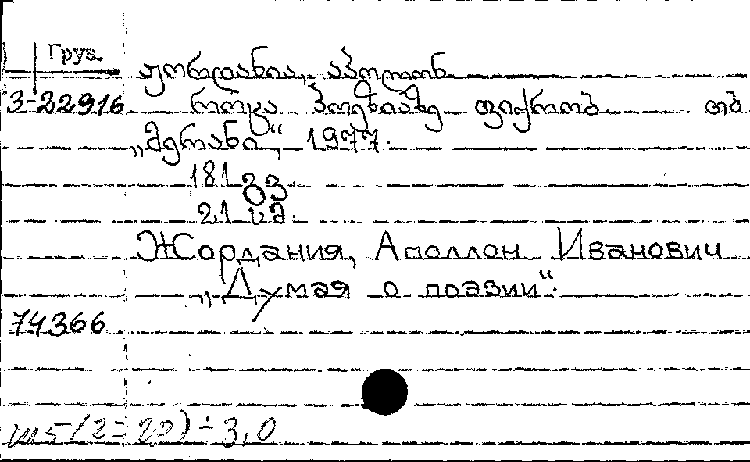 Груз.
ჟორდანია, აპოლონ
3-22916 როცა პოეზიაზე ფიქრობ თბ
„მერანი“, 1977.
181 გვ.
21 სმ.
Жордания, Аполлон Иванович
„Думая о поэзии“.
74366